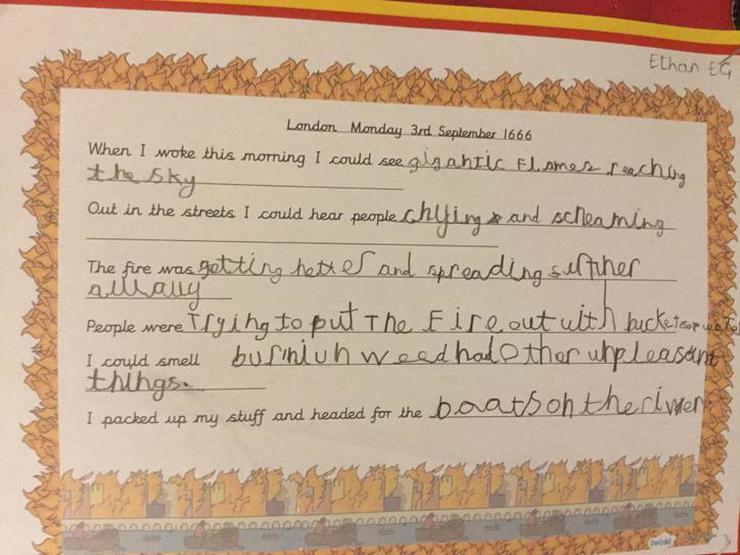 Ethan EG
London Monday 3rd September 1666
When I woke this morning I could see gigantic Flames reaching
the sky
Out in the streets I could hear people chying and screaming
The fire was getting hotter and spreading surther
People were Trying to put The Fire out with buckets of water
I could smell burniun weed had other unpleasant
things.
I packed up my stuff and headed for the boats on the river
twinkl